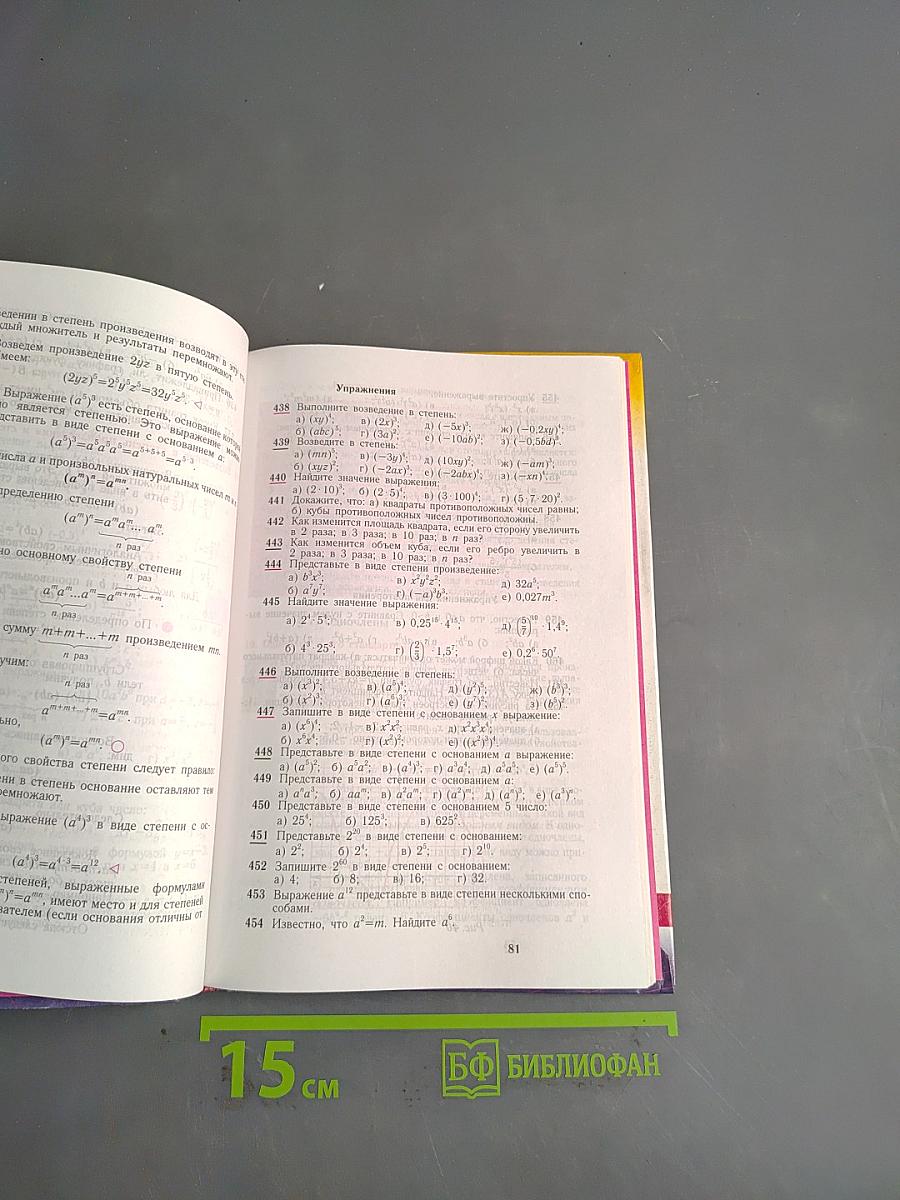 ведении в степень произведения возводят в эту
множитель и результаты перемножают.
Возведем произведение 2yz в пятую степень.
(2yz)⁵=2⁵y⁵z⁵=32y⁵z⁵. ◁
Выражение (a⁵)³ есть степень, основание
является степенью. Это выражение
в виде степени с основанием a:
(a⁵)³=a⁵a⁵a⁵=a⁵⁺⁵⁺⁵=a⁵·³.
числа a и произвольных натуральных чисел m и
(aᵐ)ⁿ=aᵐⁿ.
определению степени
(aᵐ)ⁿ=aᵐaᵐ... aᵐ.
n раз
основному свойству степени
n раз
aᵐaᵐ...aᵐ=aᵐ⁺ᵐ⁺...⁺ᵐ.
n раз
сумму m+m+...+m произведением mn.
n раз
n раз
aᵐ⁺ᵐ⁺...⁺ᵐ=aᵐⁿ.
(aᵐ)ⁿ=aᵐⁿ.
свойства степени следует правило:
в степень основание оставляют тем
перемножают.
выражение (a⁴)³ в виде степени с ос-
(a⁴)³=a⁴·³=a¹². ◁
степеней, выраженные формулами
=aᵐⁿ, имеют место и для степеней
(если основания отличны от
Упражнения
438 Выполните возведение в степень:
а) (xy)⁴; в) (2x)³; д) (−5x)³; ж) (−0,2xy)⁴;
б) (abc)⁵; г) (3a)²; е) (−10ab)²; з) (−0,5bd)³.
439 Возведите в степень:
а) (mn)⁵; в) (−3y)⁴; д) (10xy)²; ж) (−am)³;
б) (xyz)²; г) (−2ax)³; е) (−2abx)⁴; з) (−xn)⁴.
440 Найдите значение выражения:
а) (2·10)³; б) (2·5)⁴; в) (3·100)⁴; г) (5·7·20)².
441 Докажите, что: а) квадраты противоположных чисел равны;
б) кубы противоположных чисел противоположны.
442 Как изменится площадь квадрата, если его сторону увеличить
в 2 раза; в 3 раза; в 10 раз; в n раз?
443 Как изменится объем куба, если его ребро увеличить в
2 раза; в 3 раза; в 10 раз; в n раз?
444 Представьте в виде степени произведение:
а) b³x³; в) x²y²z²; д) 32a⁵;
б) a⁷y⁷; г) (−a)³b³; е) 0,027m³.
445 Найдите значение выражения:
а) 2⁴·5⁴; в) 0,25¹⁵·4¹⁵; д) (5/7)¹⁰·1,4⁹;
б) 4³·25³; г) (2/3)⁷·1,5⁷; е) 0,2⁶·50⁷.
446 Выполните возведение в степень:
а) (x³)²; в) (a⁵)⁴; д) (y²)⁵; ж) (b³)³;
б) (x²)³; г) (a⁶)³; е) (y⁷)²; з) (b⁵)².
447 Запишите в виде степени с основанием x выражение:
а) (x⁵)⁴; в) x²x²; д) x²x³x⁴;
б) x⁵x⁴; г) (x²)²; е) ((x²)³)⁴.
448 Представьте в виде степени с основанием a выражение:
а) (a⁵)²; б) a⁵a²; в) (a⁴)³; г) a³a⁴; д) a⁵a⁵; е) (a⁵)⁵.
449 Представьте в виде степени с основанием a:
а) aⁿa³; б) aaᵐ; в) a²aᵐ; г) (a²)ᵐ; д) (aⁿ)³; е) (a³)ⁿ.
450 Представьте в виде степени с основанием 5 число:
а) 25⁴; б) 125³; в) 625².
451 Представьте 2²⁰ в виде степени с основанием:
а) 2²; б) 2⁴; в) 2⁵; г) 2¹⁰.
452 Запишите 2⁶⁰ в виде степени с основанием:
а) 4; б) 8; в) 16; г) 32.
453 Выражение a¹² представьте в виде степени несколькими спо-
собами.
454 Известно, что a²=m. Найдите a⁶.
81
15 см
БФ БИБЛИОФАН